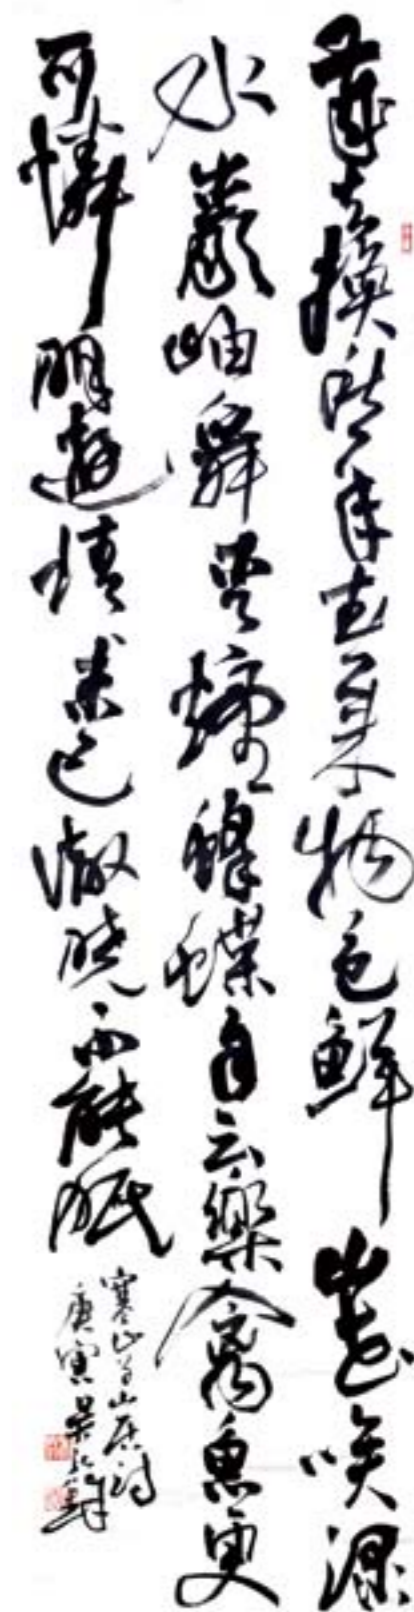 歲去換愁年春來物色鮮山花咲淥
水巖岫舞煙蜂蝶自云樂禽魚更
可憐朋遊情未已徹曉不能眠
寒山子山居詩
庚寅吳